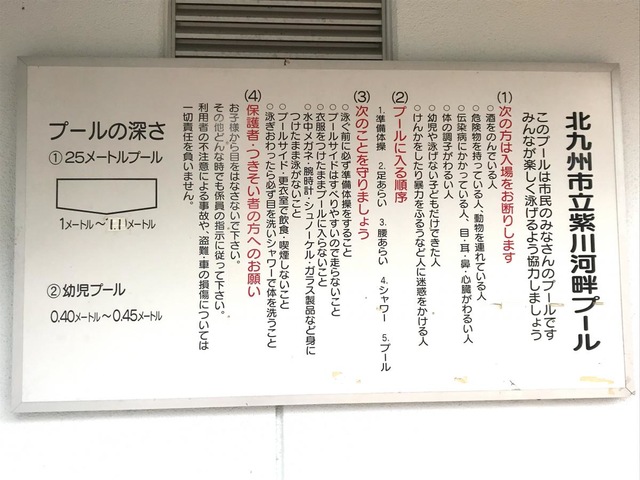 北九州市立紫川河畔プール
このプールは市民のみなさんのプールです
みんなが楽しく泳げるよう協力しましょう
(1)次の方は入場をお断りします
○酒をのんでいる人
○危険物を持っている人、動物を連れている人
○伝染病にかかっている人、目・耳・鼻・心臓がわるい人
○体の調子がわるい人
○幼児や泳げない子どもだけできた人
○けんかをしたり暴力をふるうなど人に迷惑をかける人
(2)プールに入る順序
1.準備体操 2.足あらい 3.腰あらい 4.シャワー 5.プール
(3)次のことを守りましょう
○泳ぐ前に必ず準備体操をすること
○プールサイドはすべりやすいので走らないこと
○衣服をつけたままプールに入らないこと
○水中メガネ・腕時計・シュノーケル・ガラス製品など身に
つけたまま泳がないこと
○プールサイド・更衣室で飲食・喫煙しないこと
○泳ぎおわったら必ず目を洗いシャワーで体を洗うこと
(4)保護者・つきそい者の方へのお願い
お子様から目をはなさないで下さい。
その他どんな時でも係員の指示に従って下さい。
利用者の不注意による事故や、盗難・車の損傷については
一切責任を負いません。
プールの深さ
①25メートルプール
1メートル〜1.1メートル
②幼児プール
0.40メートル〜0.45メートル